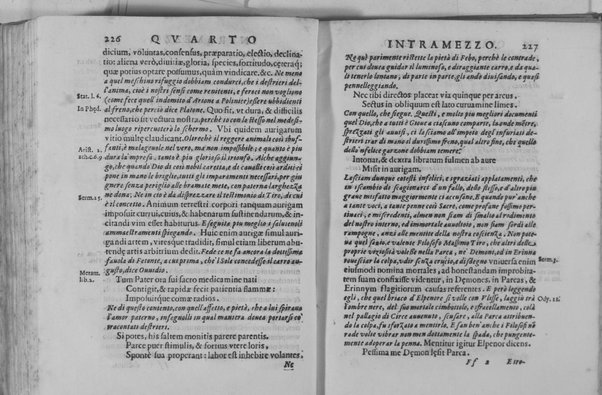 226 QVARTO
dicium, voluntas, consensus, præparatio, electio, declina-
tio: aliena verò, diuitiæ, gloria, species, fortitudo, cæteraq;
quæ potius optare possumus, quàm vindicare, &c. Ne meno
a quel meschino rifuggia dobbiam condurci, che i destrieri del
l'anima, cioè i nostri sensi come reniteuti, e feroci non vogliono
Stat. l. 6. (come fece quell'indomito d'Arione a Polinice) essere vbbidienti
In Phęd. al freno, che perciò dice Platone. Quo fit, vt dura, & difficilis
necessario sit vectura nostra, perciò con lo stesso nel medesi-
mo luogo ripercuterò lo schermo. Vbi quidem aurigarum
vitio multę claudicant. Oltrechè il reggere tali destrieri, cio ch sbu-
Arist. 2. fanti, è malageuole nel vero, ma non impossibile; e quanto è più
eth. c. 6.9 dura la impresa, tanto è più glorioso il trionfo. Alche aggiun-
go, che quando Dio de' cieli nella carretta, e di caualli così arditi ci
pone in mano le briglie, tutti gli imparamenti necessari, per giu-
gnere senza periglio alle bramate mete, con paterna larghezza
Serm. 15. ne dona; Ne in ciò è da disprezzare il testimonio di Tiro, di cui
è il concetto. Animum terrestri corpori tanquam aurigam
imposuit currui, cuius, & habenarum sustinendarum, & in-
citandi vim esset habiturus. Eseguita più meglio i saluteuoli
ammaestramenti spiegando. Huic enim aurigæ simul auri-
gandi artem, viresque tradidit, simul etiam liberum a bu-
tendi artis arbitrium dedit. Fede ce ne fa ancora la dottissima
Metam. scuola di Fetonte, a cui prima, che il Sole concedesse il carro au-
lib. 2. gusto, dice Ouuidio.
Tum Pater ora sui sacro medicamine nati
Contigit, & rapidæ fecit patientia flammæ:
Imposuitque comæ radios.
Ne di questo contento, con quell'affetto, e pietà, che a lui spirano
l'amor paterno, insegnolli in qual maniera deuea portarsi co'
racontati destrieri.
Si potes, his saltem monitis parere parentis.
Parce puer stimulis, & fortius vtere loris,
Sponte sua properant: labor est inhibere volantes,
Ne
INTRAMEZZO. 227
Ne què parimente ristette la pietà di Febo, perchè le contrade,
per cui deuea guidar il luminoso, e diraggiante carro, e da qua-
li tenerlo lontano, di parte in parte, gli andò diuisando, e quasi
pennelleggiando.
Nec tibi directos placeat via quinque per arcus.
Sectus in obliquum est lato curuamine limes.
Con quello, che segue. Questi, e molto più megliori documenti
quel Dio, che a tutti i Cieur a ciascuno comparte, li unde mérce,
sprezzati gli auuisi, ci lasciamo all'impeto degl infuriati de-
strieri trar di mano il durissimo freno, qual altro fine, che quello
dell'infelice garzone dobbiam attendere?
Intonat, & dextra libratum fulmen ab aure
Misit in aurigam.
Lasciam dunque cotesti infelici, e sgraziati applaudimenti, che
in iscambio di scagionarci d'un fallo, dello stesso, e d'altro più
graue misfatto maggiormente ci accusano. E quando pur anche
a tante voci, a tante penne così Sacre, come profane fossimo per-
tinaci, e miscredenti, almen non siam di smalto al rodimento
del nostro interno, ed immortale auoltoio, non siam sordi alle
trompe, anzi alle mentite della nostra coscienza. Non patiamo
quel saggio, e valente Filosofo Massimo Tiro, che altri delle
proprie ingiustizie veste la colpa a Parca, ne' Demoni, ed in Erinni
rouesciar la colpa, suol senza crucio, e disdegno vniuersa enim Serm. 3.
eiusmodi nomina mortales, ad honestandam improbita-
tem suam confixisse videntur, in Dęmones, in Parcas, &
Erinnyem flagitiorum causas referentes. E però leggendo
egli, che quel briaco d'Elpenore si vide con Vlisse, laggiù trà Ody. 11.
l'ombre nere, del suo mortale ciambolamento, e fiaccacollo, colà
nel pallagio di Circe auuenuto, scusarsi, alla Parca attribuen-
do la colpa, fu sforzato a mentirlo. E fan ben anche i Filosofi tal-
volta vibrar non men dottamente la spada, che pungente-
mente adoprar la penna. Mentitur igitur Elpenor dicens.
Pessima me Dęmon lęsit Parca.
Ff 2 Ero-